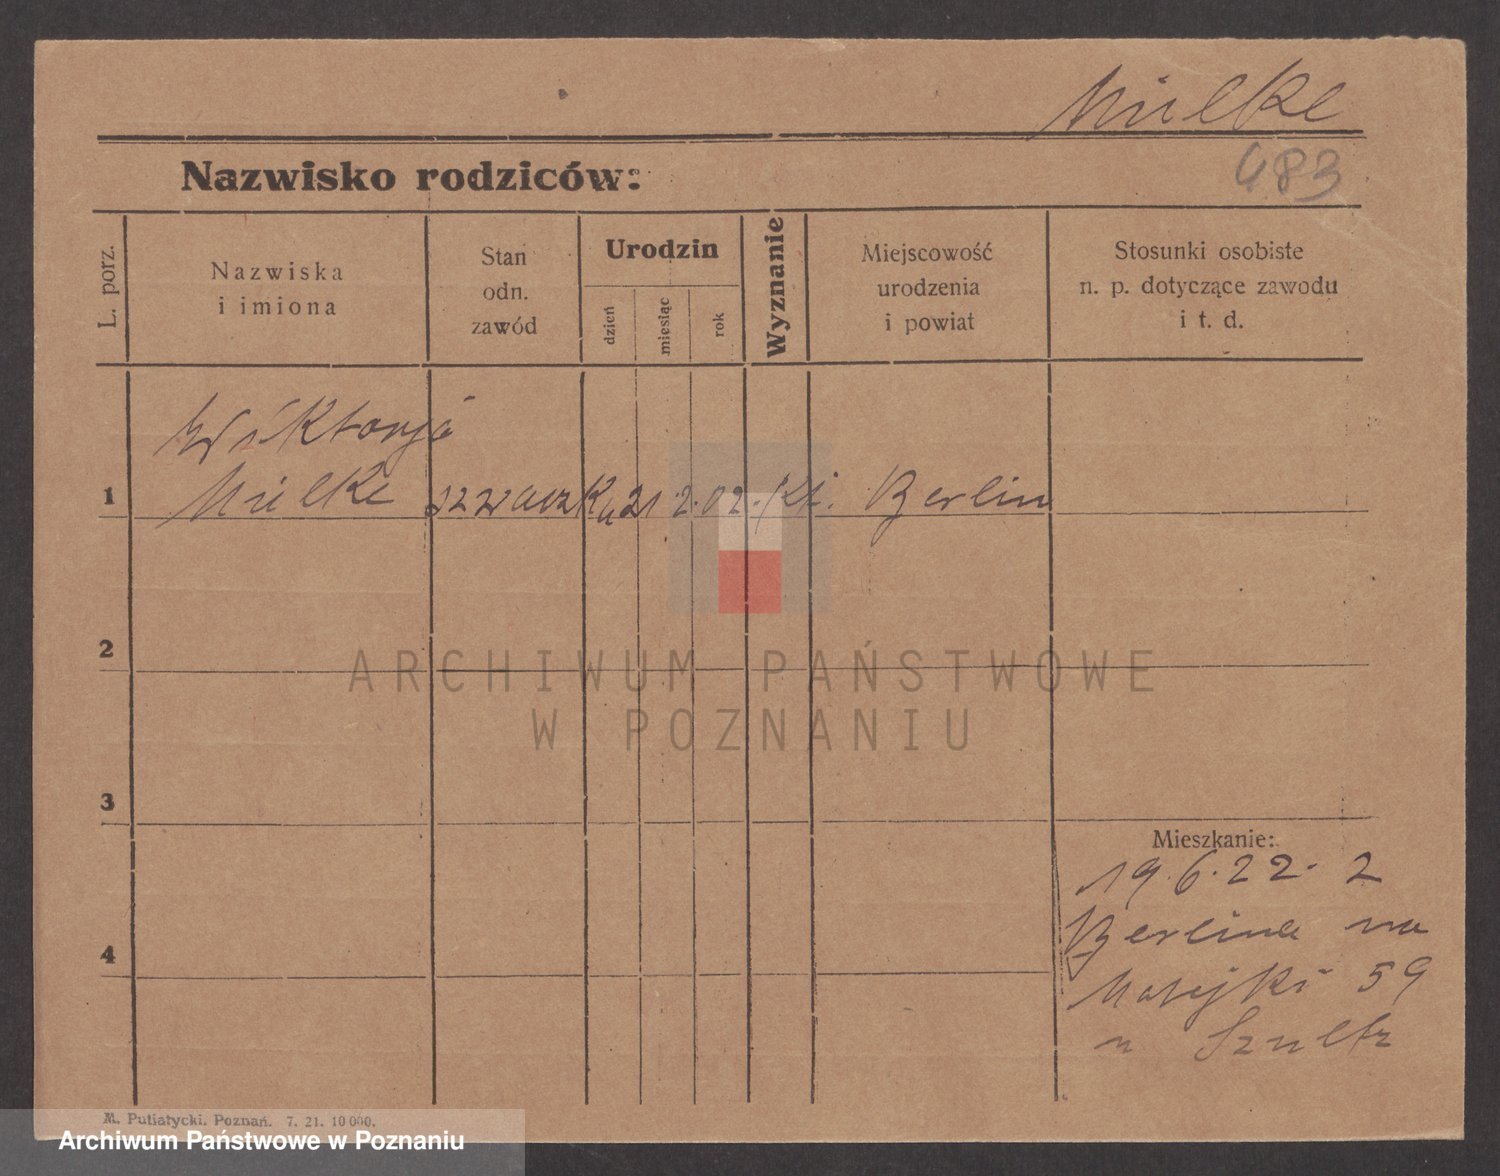 Mielke
483
Nazwisko rodziców:
L. porz.
Nazwiska
i imiona
Stan
odn.
zawód
Urodzin
dzień
miesiąc
rok
Wyznanie
Miejscowość
urodzenia
i powiat
Stosunki osobiste
n. p. dotyczące zawodu
i t. d.
Wiktorja
1 Mielke szwaczka 21 2. 02. kt. Berlin
2
ARCHIWUM PAŃSTWOWE
W POZNANIU
3
Mieszkanie:
19. 6. 22. z
Berlina na
4
Matejki 59
u Szultz
M. Putiatycki. Poznań. 7. 21. 10 000.
Archiwum Państwowe w Poznaniu